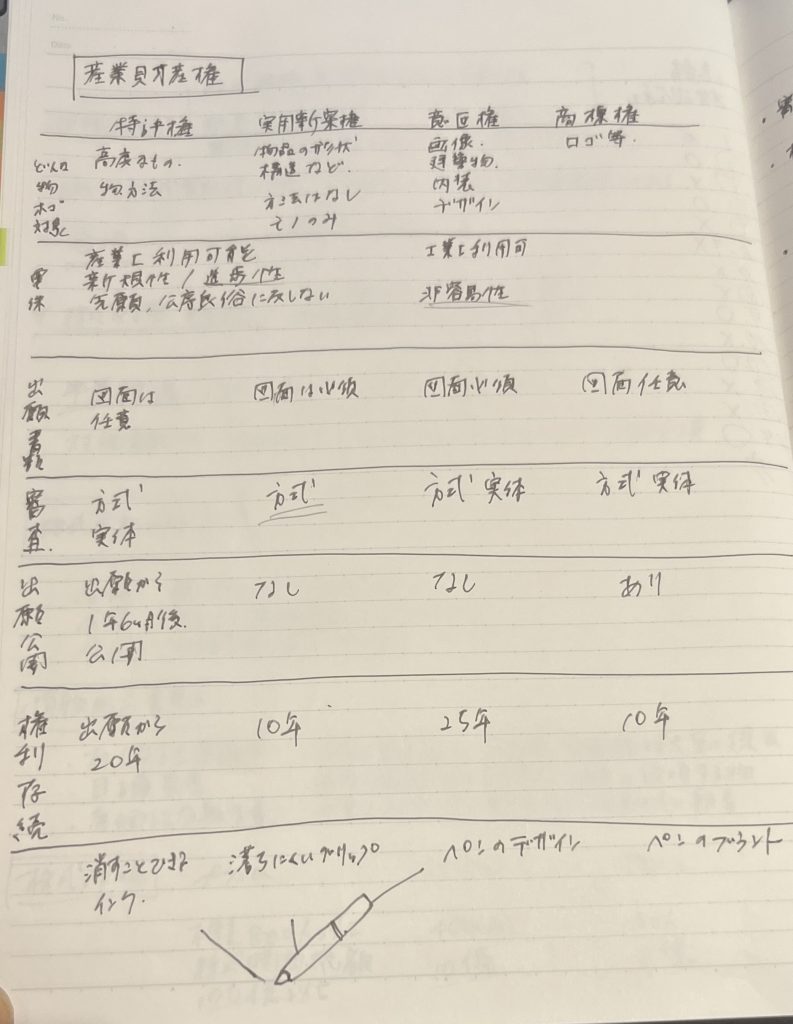 No.
Date
産業財産権
特許権 実用新案権 意匠権 商標権
どんな物 ホゴ対象
高度なもの. 物品の形状 画像. ロゴ等.
物方法 構造など. 建築物.
方法はなし 内装
モノのみ デザイン
要件
産業上利用可能 工業上利用可
新規性 / 進歩性
先願, 公序良俗に反しない 非容易性
出願書類
図面は 図面は必須 図面必須 図面任意
任意
審査.
方式 方式 方式 実体 方式 実体
実体
出願公開
出願から なし なし あり
1年6ヶ月後.
公開
権利存続
出願から 10年 25年 10年
20年
消すことできる 落ちにくいグリップ ペンのデザイン ペンのブランド
インク.